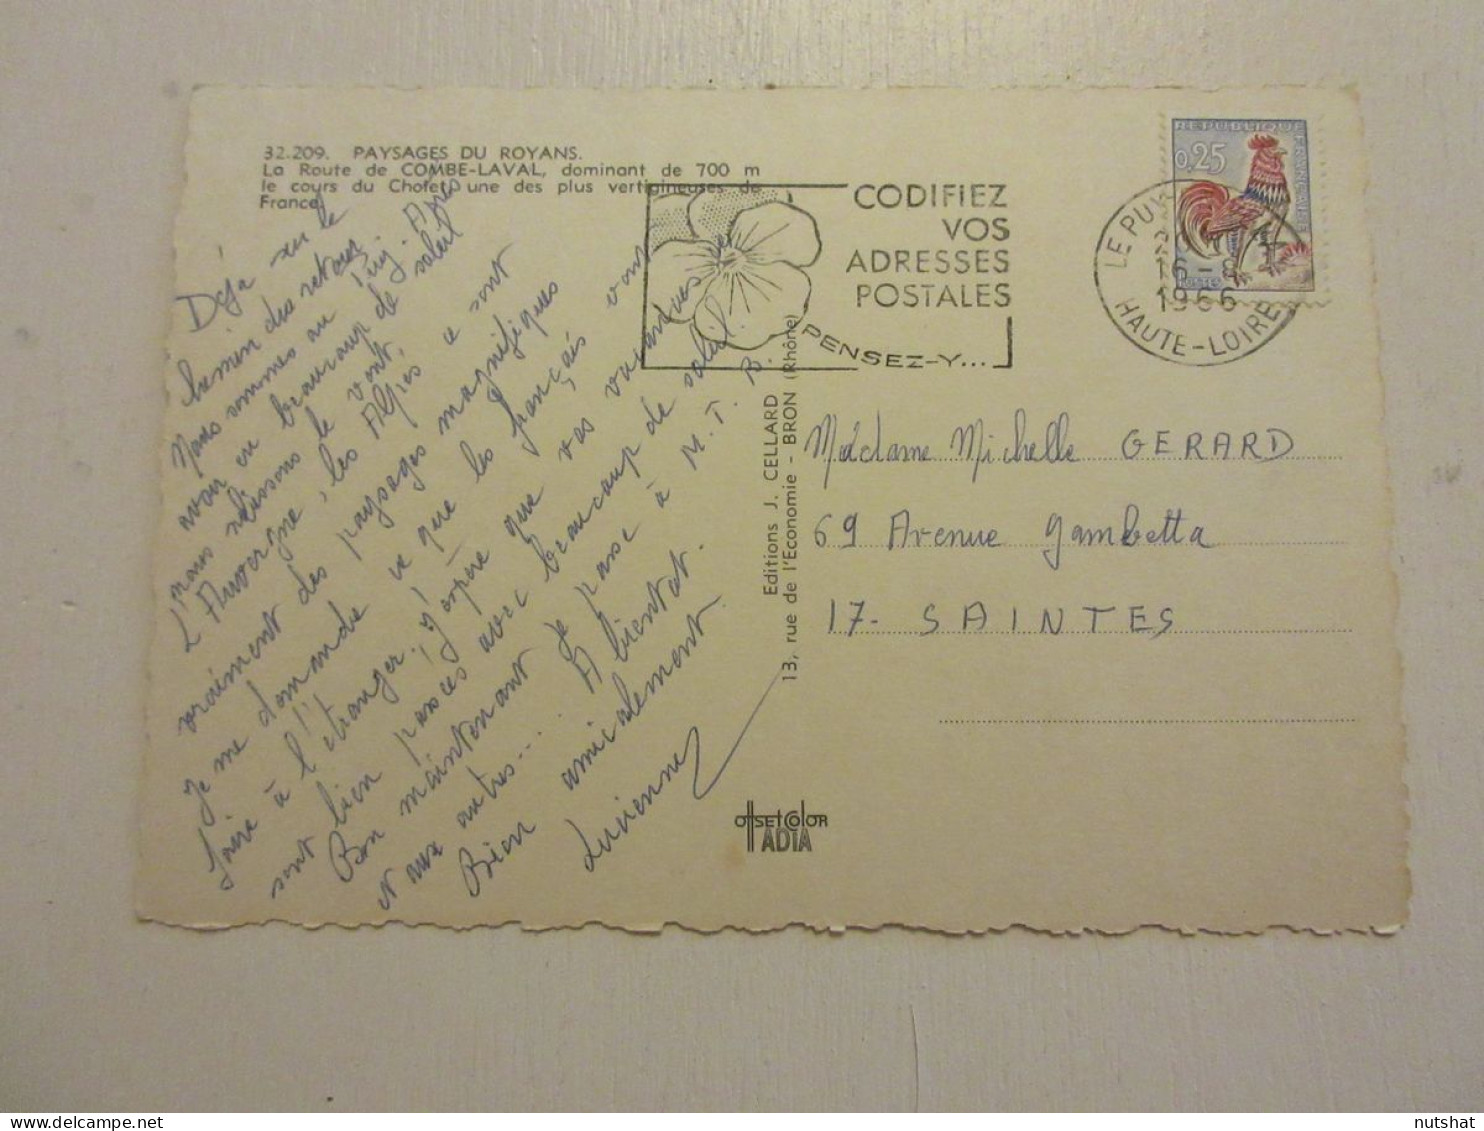 32.209. PAYSAGES DU ROYANS.
La Route de COMBE-LAVAL, dominant de 700 m
le cours du Cholet, une des plus vertigineuses de
France.
Déjà sur le
chemin du retour
Nous sommes au Puy. Après
avoir eu beaucoup de soleil
nous subissons le vent,
L'Auvergne, les Alpes ce sont
vraiment des paysages magnifiques
Je me demande ce que les français vont
faire à l'étranger. J'espère que vos vacances se
sont bien passées avec beaucoup de soleil.
Bon maintenant je passe à M. T. B.
N aux autres... A bientôt.
Bien amicalement.
Lucienne
Editions J. CELLARD
13, rue de l'Economie - BRON (Rhône)
OffsetColor
ADIA
CODIFIEZ
VOS
ADRESSES
POSTALES
PENSEZ-Y...
LE PUY
16 - 8
1966
HAUTE-LOIRE
REPUBLIQUE FRANÇAISE
0,25
POSTES
Madame Michelle GERARD
69 Avenue Gambetta
17- SAINTES
nutshat